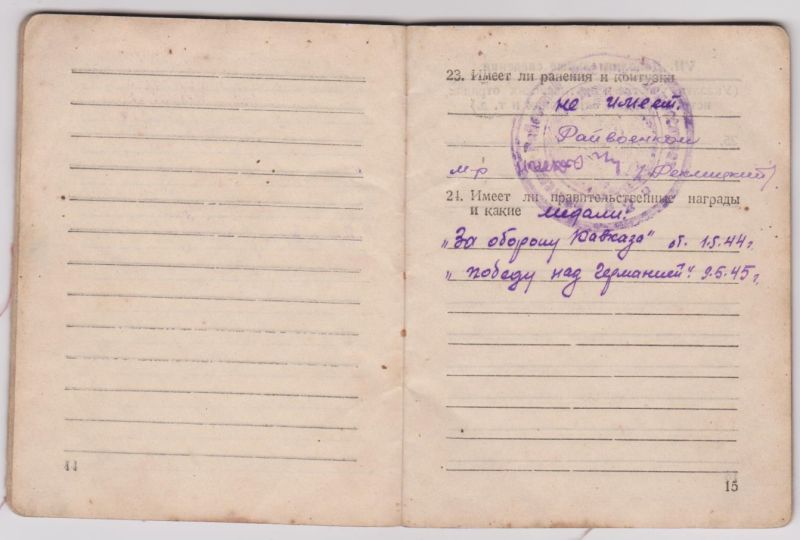 23. Имеет ли ранения и контузии
не имеет.
Райвоенком
м-р
24. Имеет ли правительственные награды
и какие медали:
„За оборону Кавказа" от. 1.5.44 г.
„победу над Германией". 9.5.45 г.
44
15